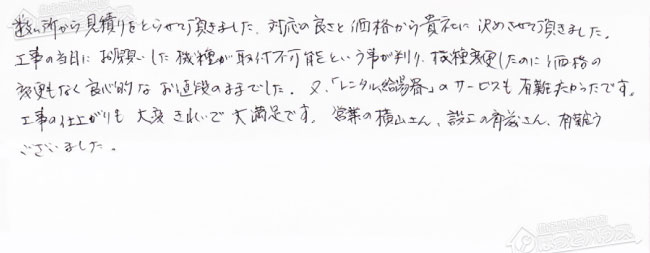 数ヶ所から見積りをとらせて頂きました。対応の良さと価格から貴社に決めさせて頂きました。
工事の当日にお願いした機種が取付不可能という事が判り、機種変更したのに価格の
変更もなく良心的なお値段のままでした。又、「レンタル給湯器」のサービスも有難たかったです。
工事の仕上がりも大変きれいで大満足です。営業の横山さん、設工の斉藤さん、有難う
ございました。